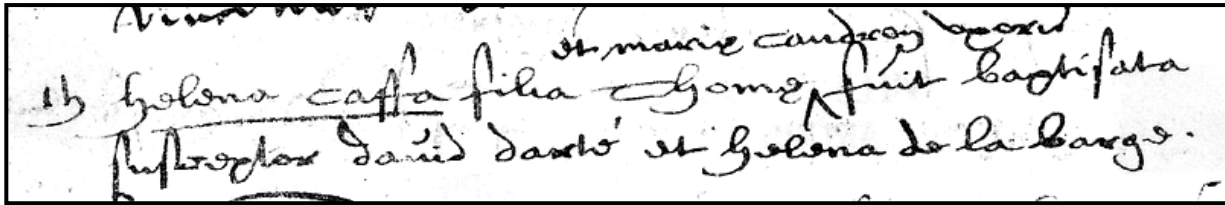 et marie caudron uxoris
15 helena caffa filia Thome fuit baptisata
susceptor david darté et helena de la barge.